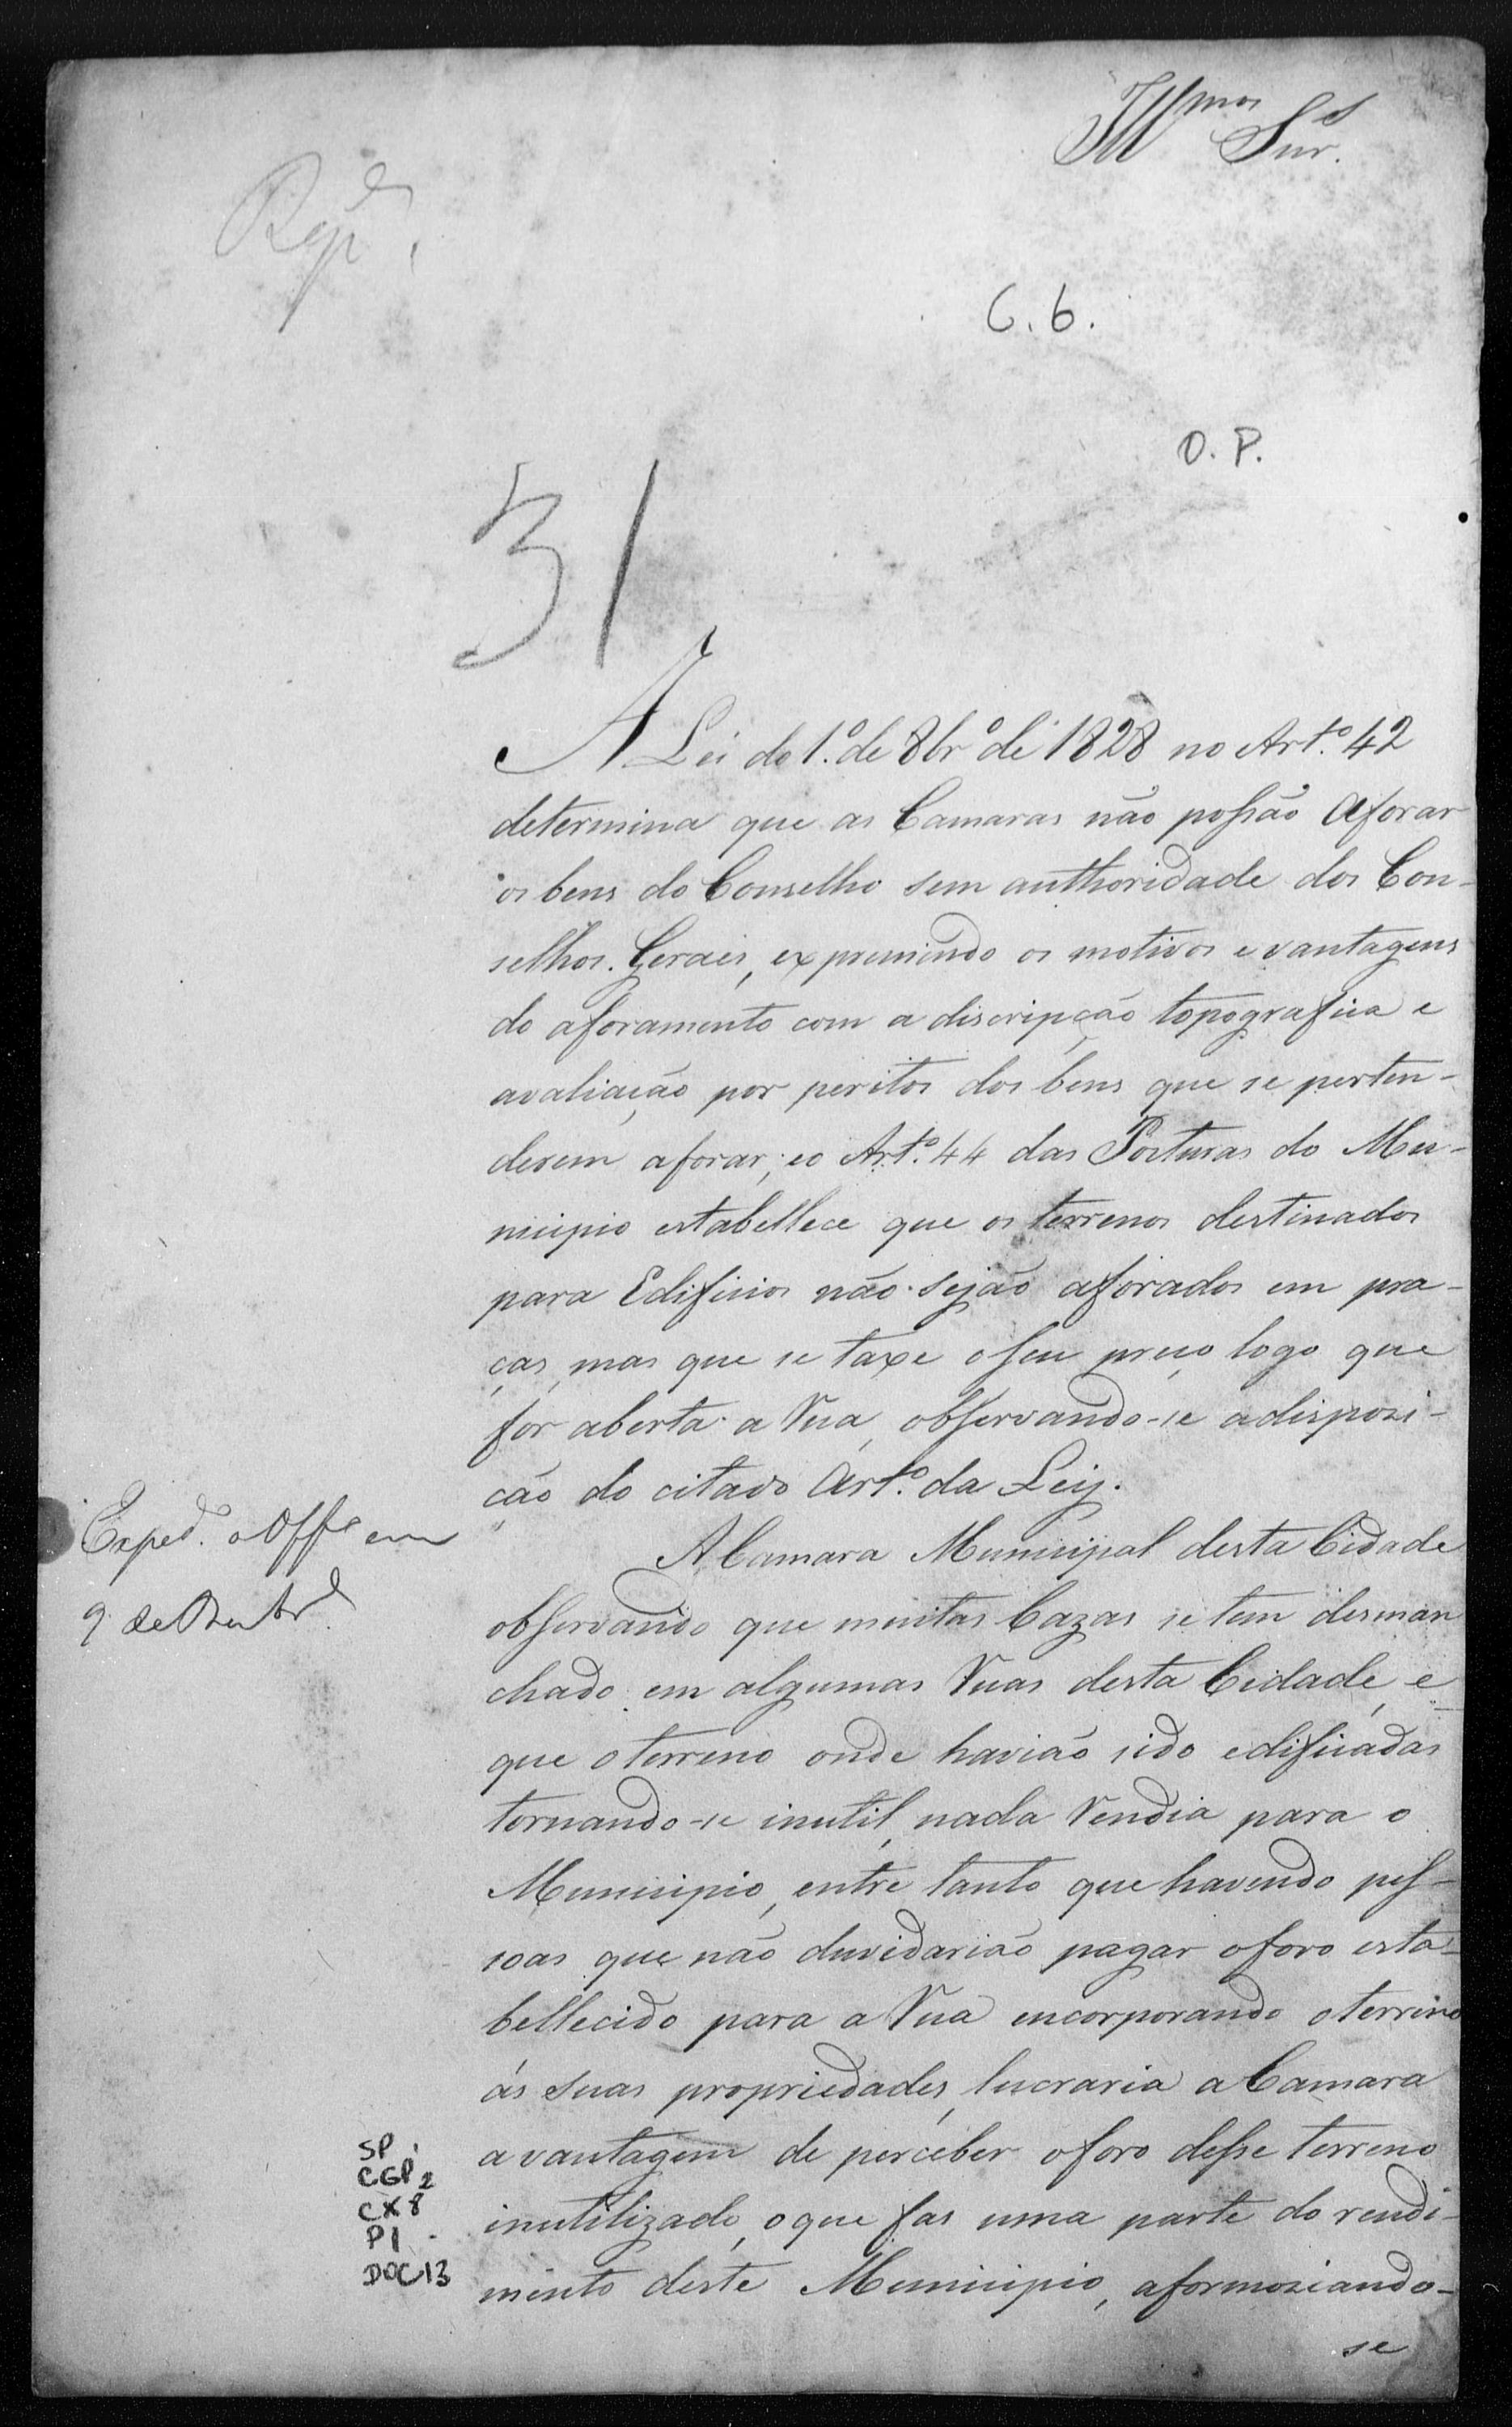 Ill.mos Snr.s
Rep.da
C. 6.
O. P.
31
A Lei do 1.º de 8br.º de 1828 no Art.º 42
determina que as Camaras não possão Aforar
os bens do Conselho sem authoridade dos Con-
selhos Geraes, expremindo os motivos e vantagens
do aforamento com a discripção topografica e
avaliação por peritos dos bens que se perten-
derem aforar; e o Art.º 44 das Posturas do Mu-
nicipio estabellece que os terrenos destinados
para Edificios não sejão aforados em pra-
ças, mas que se taxe o seu preço logo que
for aberta a Rua, observando-se a disposi-
ção do citado Art.º da Ley.
A Camara Municipal desta Cidade
observando que muitas Cazas se tem desman
chado em algumas Ruas desta Cidade, e
que o terreno onde havião sido edificadas
tornando-se inutil, nada Rendia para o
Municipio, entre tanto que havendo pes-
soas que não duvidarião pagar o foro esta-
bellecido para a Rua encorporando o terreno
ás suas propriedades, lucraria a Camara
a vantagem de perceber o foro desse terreno
inutilizado, o que fas uma parte do rendi-
mento deste Municipio, aformoziando-
se
Exped. o Off.º em
9 de
SP
CGP 2
CX 8
P1
DOC 13